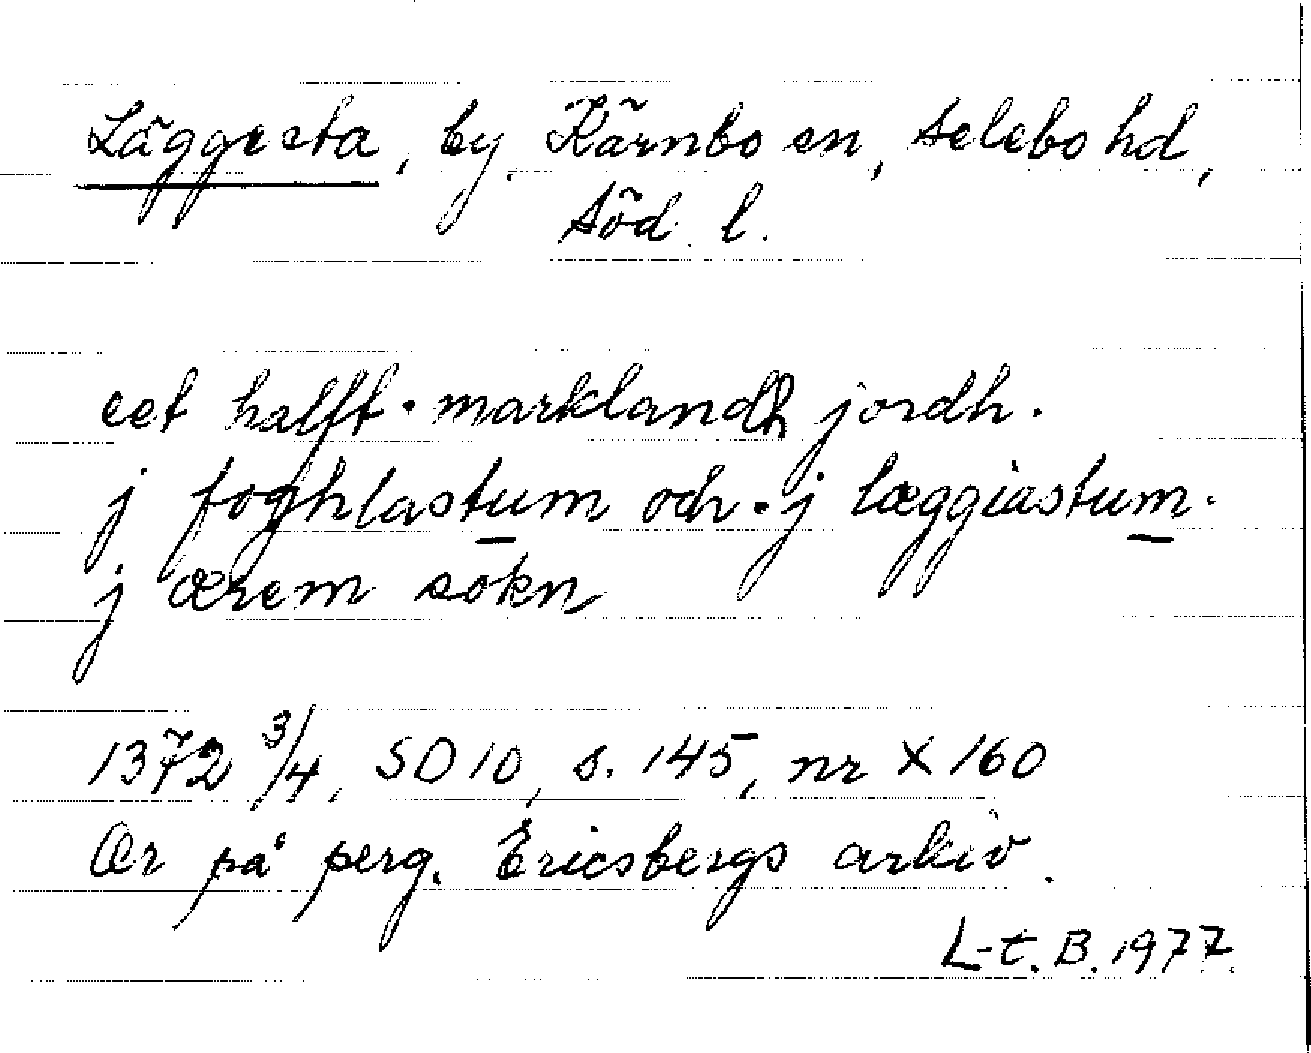 Läggesta, by, Kärnbo sn, Selebo hd,
Söd. l.
eet halfft · marklandh jordh.
j foghlastum och · j læggiastum ·
j ærem sokn
1372 3/4, SD 10, s. 145, nr X 160
Or på perg. Ericsbergs arkiv.
L-t. B. 1977.